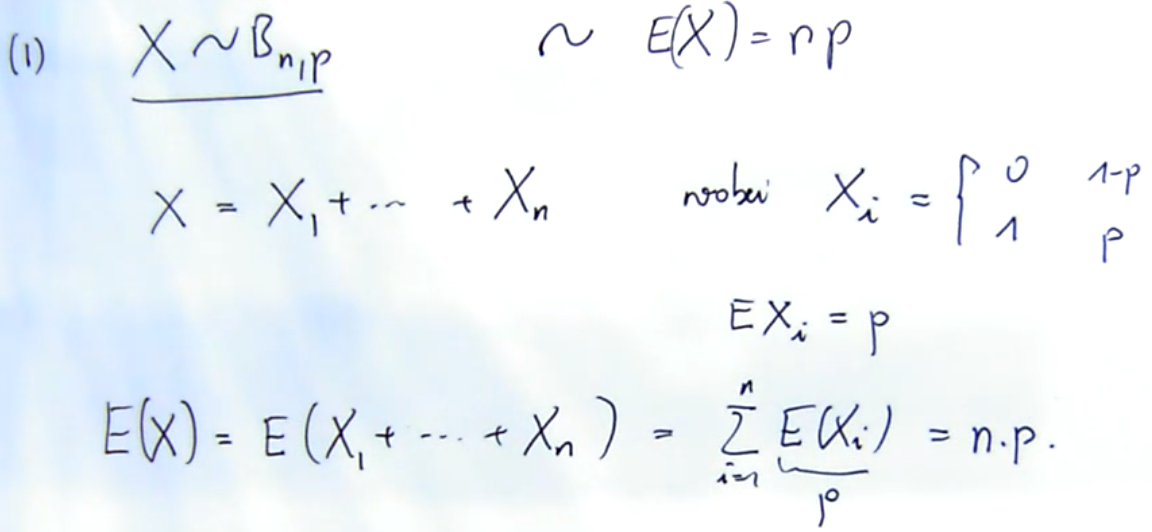 (1) X ~ B_{n,p} ~ E(X) = np
X = X_1 + ... + X_n wobei X_i = { 0 1-p
1 p
EX_i = p
E(X) = E(X_1 + ... + X_n) = \sum_{i=1}^{n} E(X_i) = n.p.
p